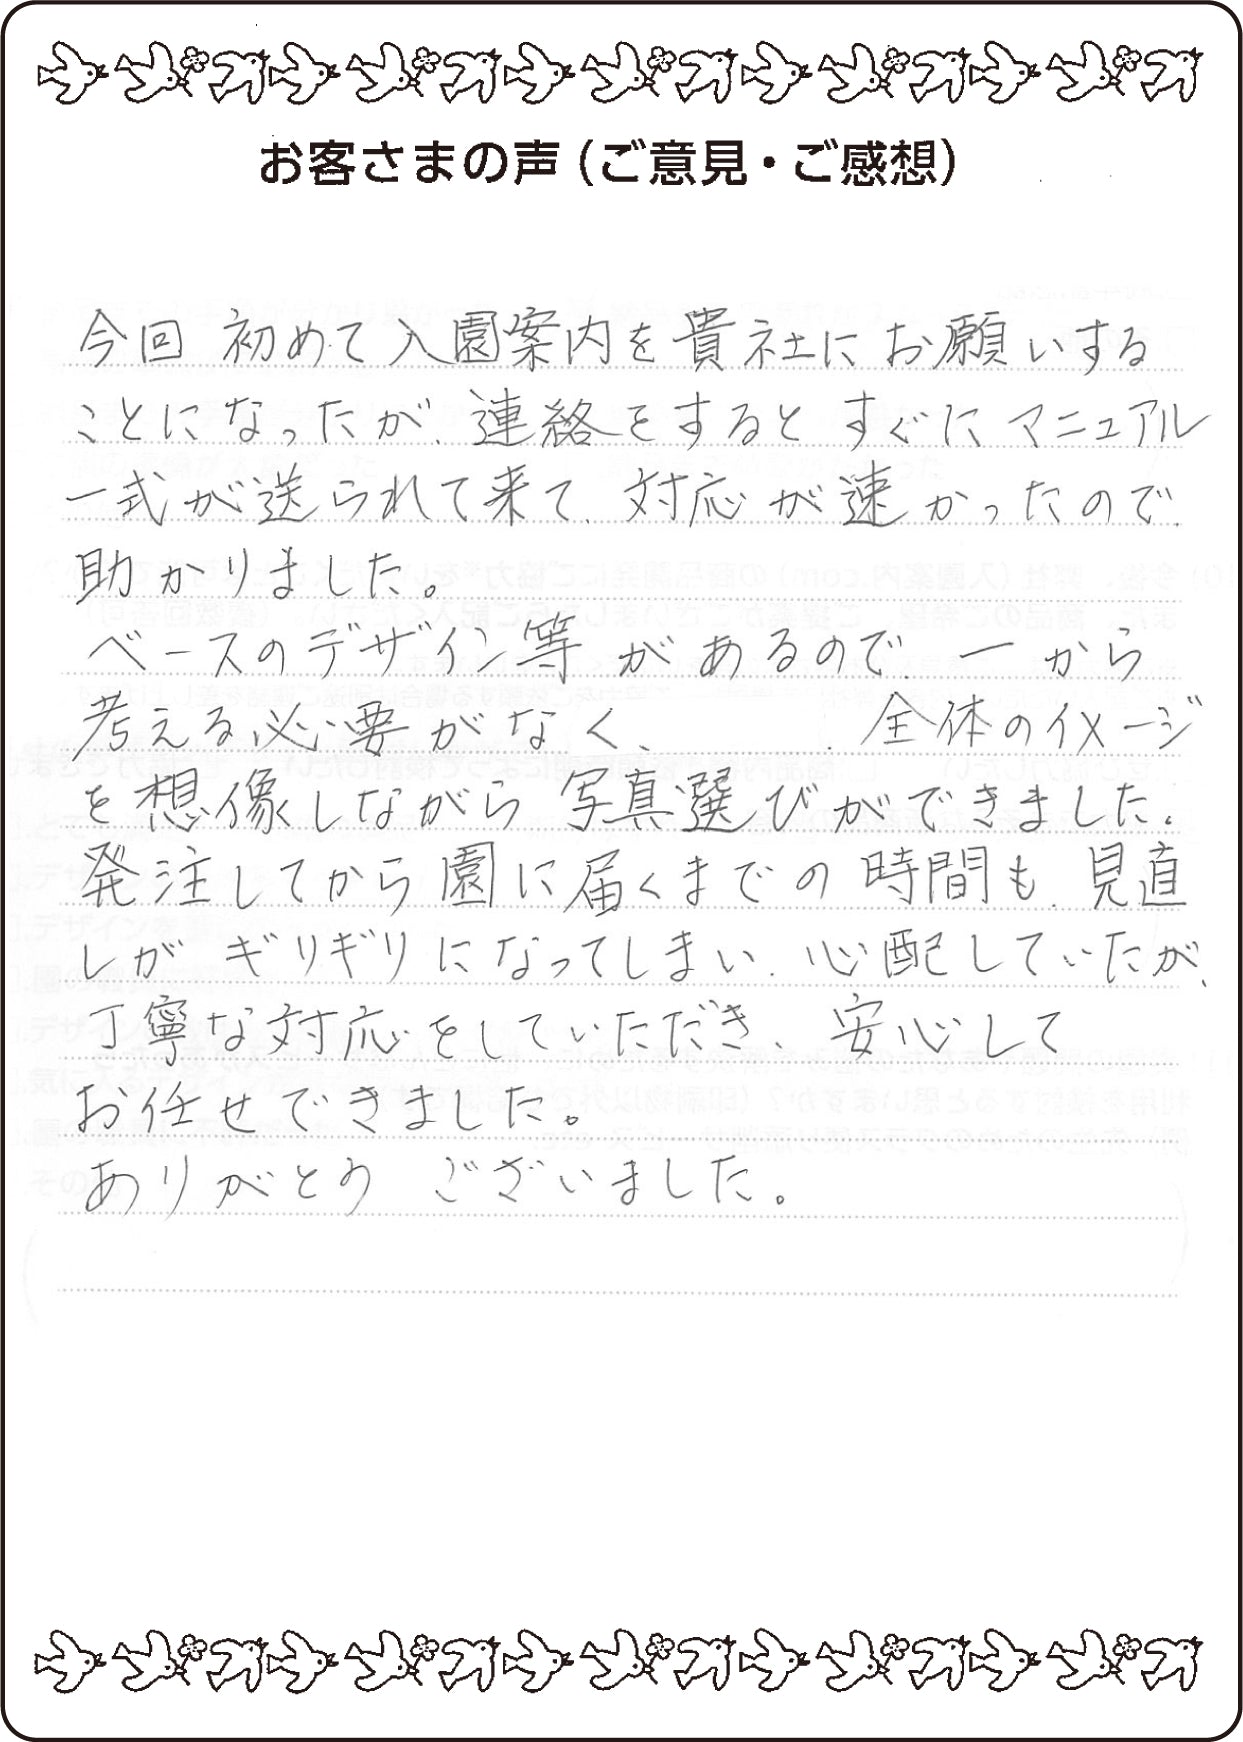 お客さまの声(ご意見・ご感想)
今回 初めて入園案内を貴社にお願いする
ことになったが、連絡をするとすぐにマニュアル
一式が送られて来て、対応が速かったので、
助かりました。
ベースのデザイン等があるので、一から
考える必要がなく、、全体のイメージ
を想像しながら写真選びができました。
発注してから園に届くまでの時間も、見直
しがギリギリになってしまい、心配していたが、
丁寧な対応をしていただき、安心して
お任せできました。
ありがとう ございました。